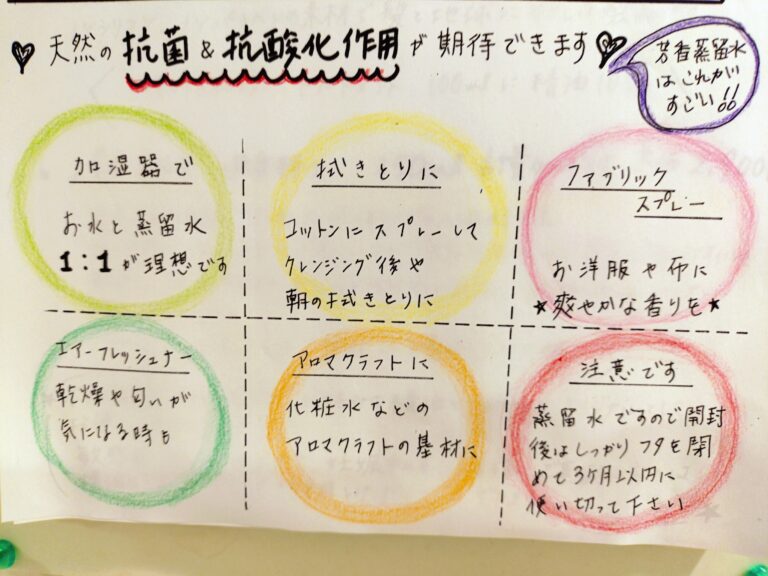 ♥ 天然の 抗菌 & 抗酸化作用 が 期待できます ♥
芳香蒸留水
はこれが
すごい!!
加湿器で
お水と蒸留水
1:1が理想です
拭きとりに
コットンにスプレーして
クレンジング後や
朝の拭きとりに
ファブリック
スプレー
お洋服や布に
★爽やかな香りを★
エアーフレッシュナー
乾燥や匂いが
気になる時も
アロマクラフトに
化粧水などの
アロマクラフトの基材に
注意です
蒸留水ですので開封
後はしっかりフタを閉
めて3ケ月以内に
使い切って下さい